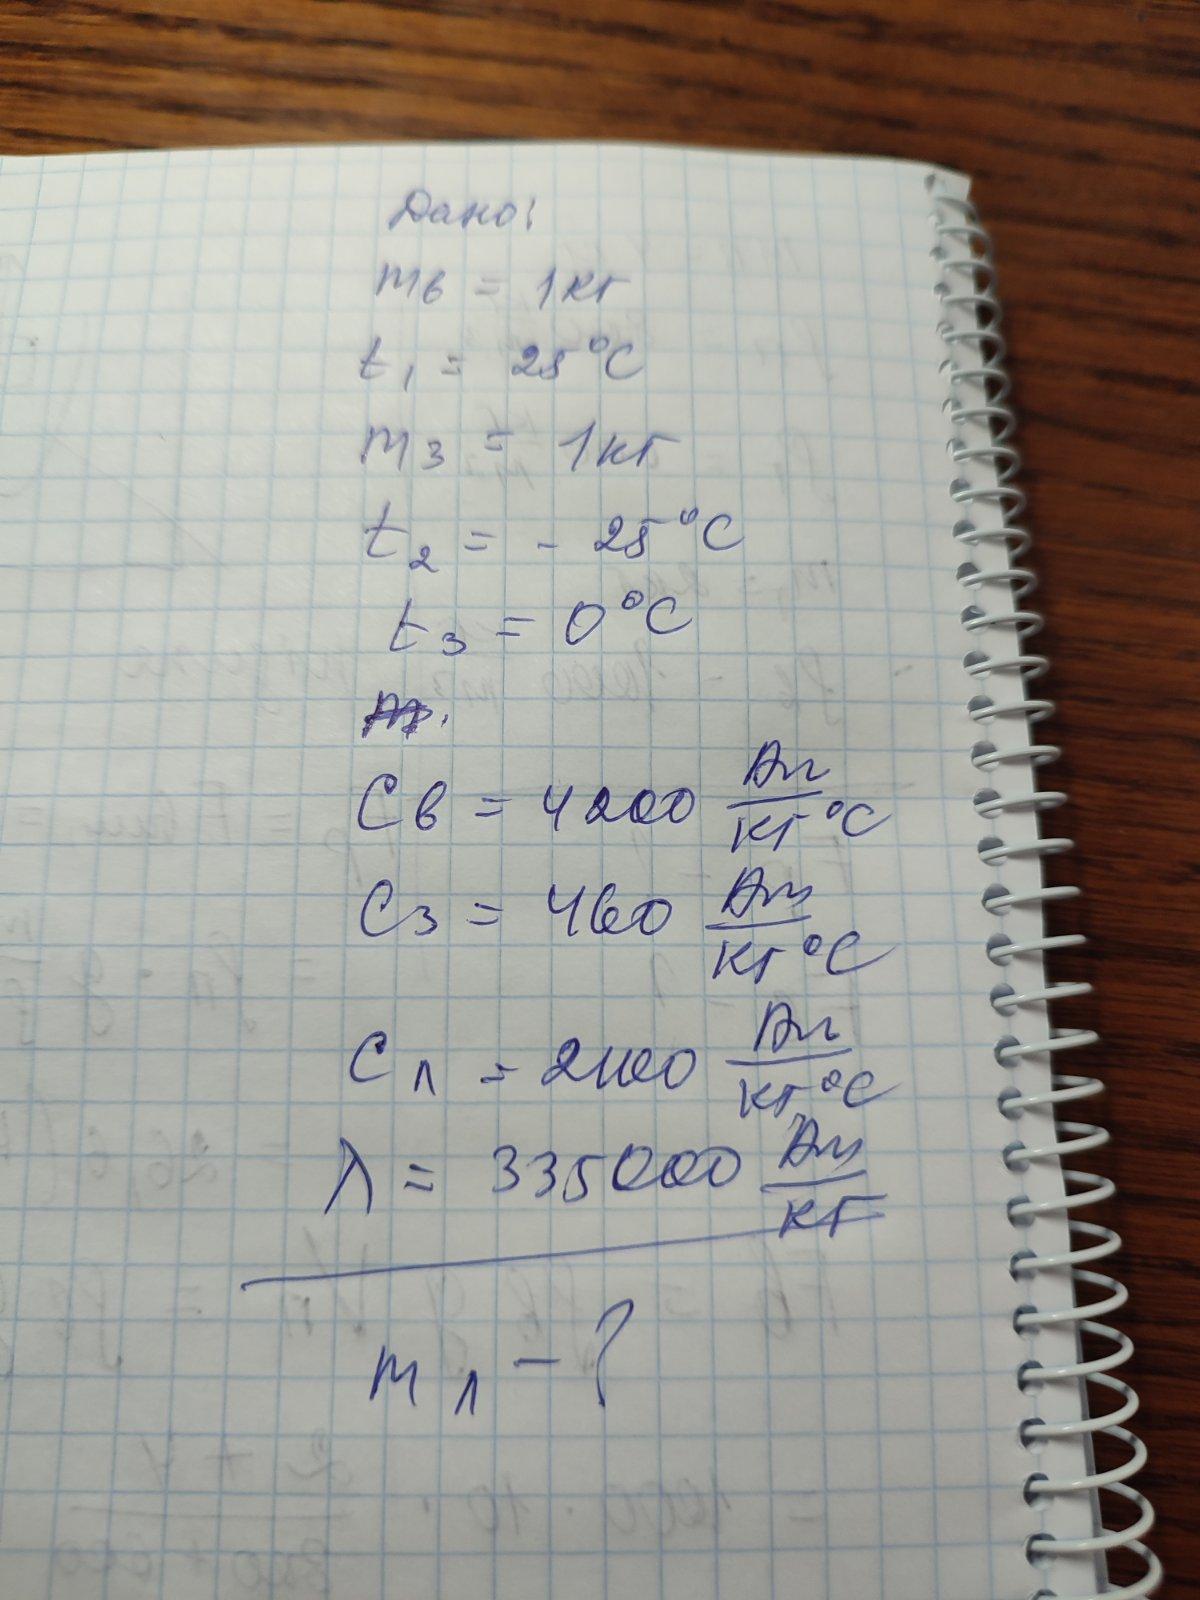 Дано:
mв = 1кг
t₁ = 25°C
m₃ = 1кг
t₂ = - 25°C
t₃ = 0°C
Cв = 4200 Дж/кг°C
C₃ = 460 Дж/кг°C
Cл = 2100 Дж/кг°C
λ = 335000 Дж/кг
mл - ?